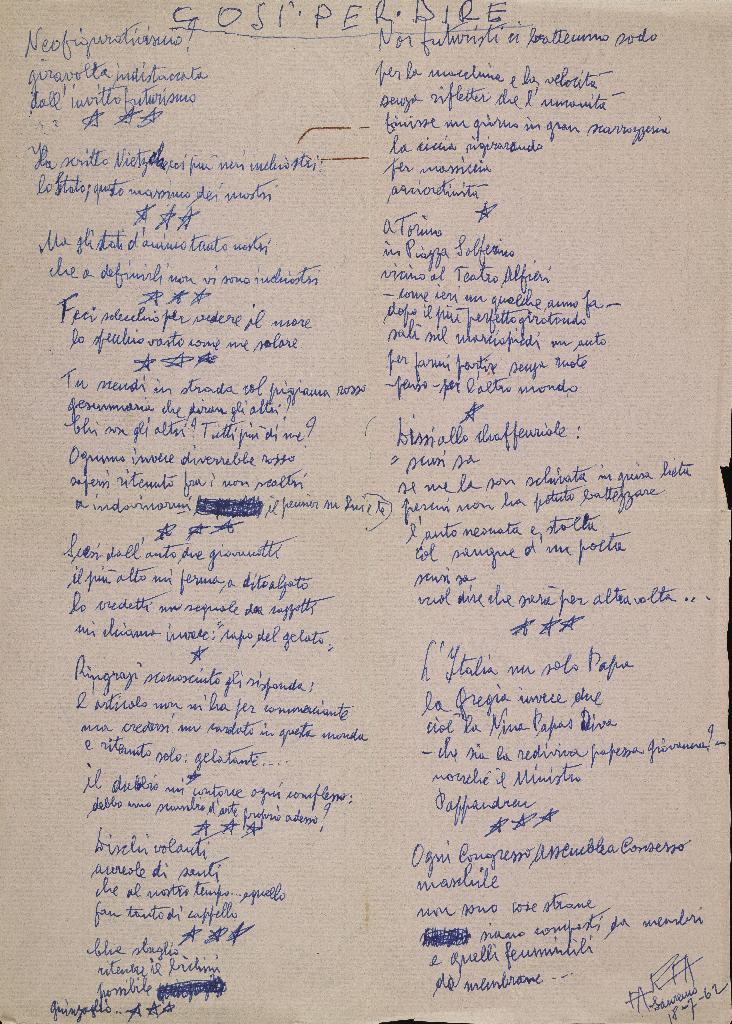 COSÌ·PER·DIRE
Neofigurativismo?
giravolta indistaccata
dall'invitto futurismo
Ha scritto Nietzche, coi più neri inchiostri:
lo Stato, questo massimo dei mostri
Ma gli stati d'animo tanto nostri
che a definirli non vi sono inchiostri
Feci solecchio per vedere il mare
lo specchio vasto come me solare
Tu scendi in strada col pigiama rosso
gesummaria che diran gli altri?
Chi son gli altri? Tutti più di me?
Ognuno invece diverrebbe rosso
sapersi ritenuto fra i non scaltri
a indovinarmi il pensier su
Scesi dall'auto due giovanotti
il più alto mi ferma, a dito alzato
lo credetti un seguale dei
mi chiama invece: "capo del gelato"
Ringrazi sconosciuto gli risponda:
l'articolo non mi ha per commerciante
ma credersi un cardato in questa monda
e ritenuto solo: gelatante....
il dubbio mi contorce ogni complesso:
debbo uno scambro d'arte proprio adesso?
Dischi volanti
aureole di santi
che al nostro tempo... a quello
fan tanto di cappello
Che sbaglio
ritenere il
possibile
guinzaglio...
Noi futuristi ci battemmo sodo
per la macchina e la velocità
senza rifletter che l'umanità
finisse un giorno in gran carrozzeria
la ciccia riparando
per massiccia
A Torino
in Piazza Solferino
vicino al Teatro Alfieri
- come ieri un qualche anno fa -
dopo il più perfetto girotondo
salì sul marciapiedi un auto
per farmi partire senza ruote
- penso - per l'altro mondo
Dissi allo chauffeuriale:
" scusi sa
se me la son schivata in guisa lieta
perciò non ha potuto battezzare
l'auto neonata e, stolta
col sangue d'un poeta
scusi sa
vuol dire che sarà per altra volta...
L'Italia un solo Papa
la Gregia invece due
cioè la Nina Papas Diva
- che sia la rediviva papessa Giovanna? -
nonché il Ministro
Pappandreu
Ogni Congresso, Assemblea Consesso
maschile
non sono cose strane
siano composti da membri
e quelli femminili
da membrane...
FARFA
Sanremo
18-7-62